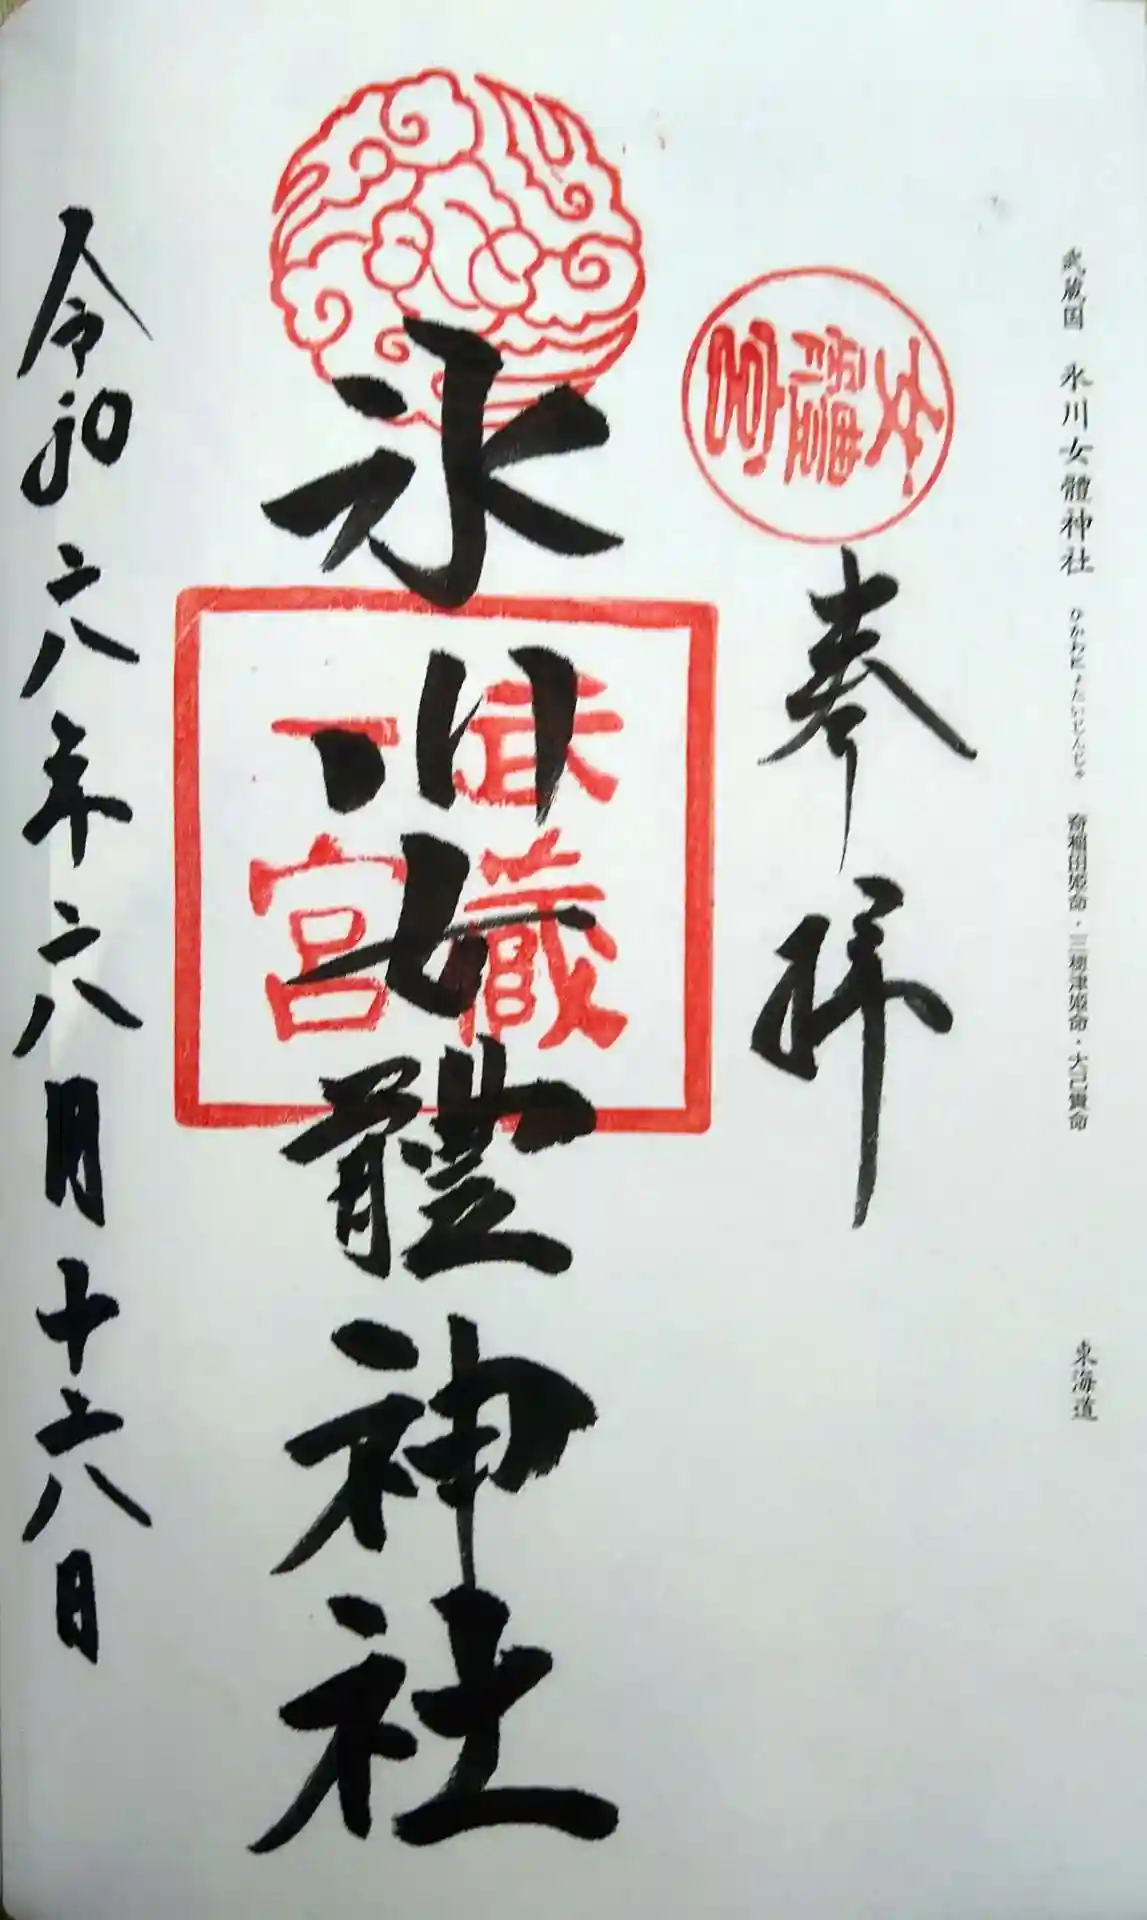 武蔵国 氷川女體神社 ひかわにょたいじんじゃ 奇稲田姫命・三穂津姫命・大己貴命 東海道
女體宮
奉拝
氷川女體神社
武蔵
一宮
令和六年六月十六日